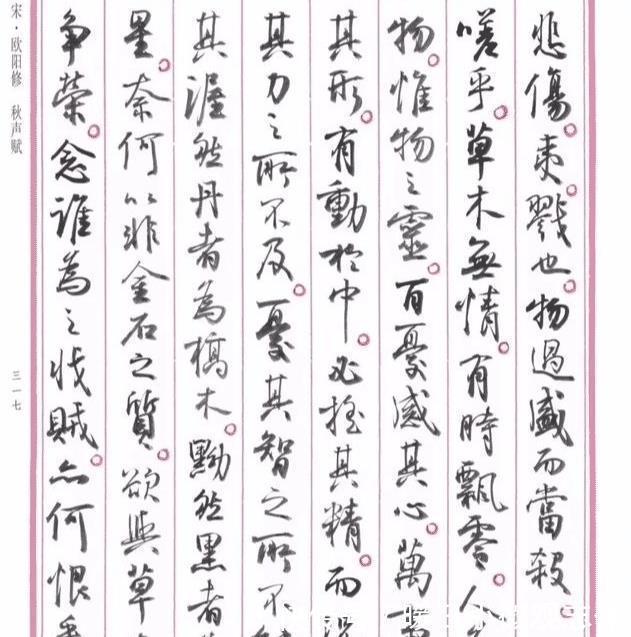 悲傷。夷。戮也。物過盛而當殺
嗟乎。草木無情。有時飄零。人
物。惟物之靈。百憂感其心。萬
其形。有動於中。必搖其精。而
其力之所不及。憂其智之所不
其渥然丹者為槁木。黝然黑者
星。奈何以非金石之質。欲與草
爭榮。念誰為之戕賊。亦何恨乎
宋·欧阳修 秋声赋
三一七